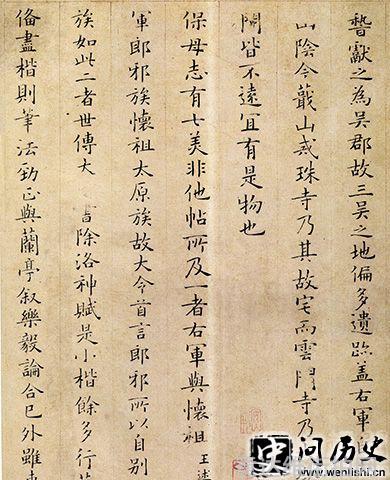 獻之為吴郡故三吴之地偏多遺跡盖右軍
山陰今蕺山戒珠寺乃其故宅而雲門寺乃
間皆不遠宜有是物也
保母志有七美非他帖所及一者右軍與懷祖王述
軍耶邪族懷祖太原族故大令首言耶邪所以自别
族如此二者世傳大 書除洛神賦是小楷餘多行
俻盡楷則筆法勁正與蘭亭叙樂毅論合已外雖
问历史
www.wenlishi.cn